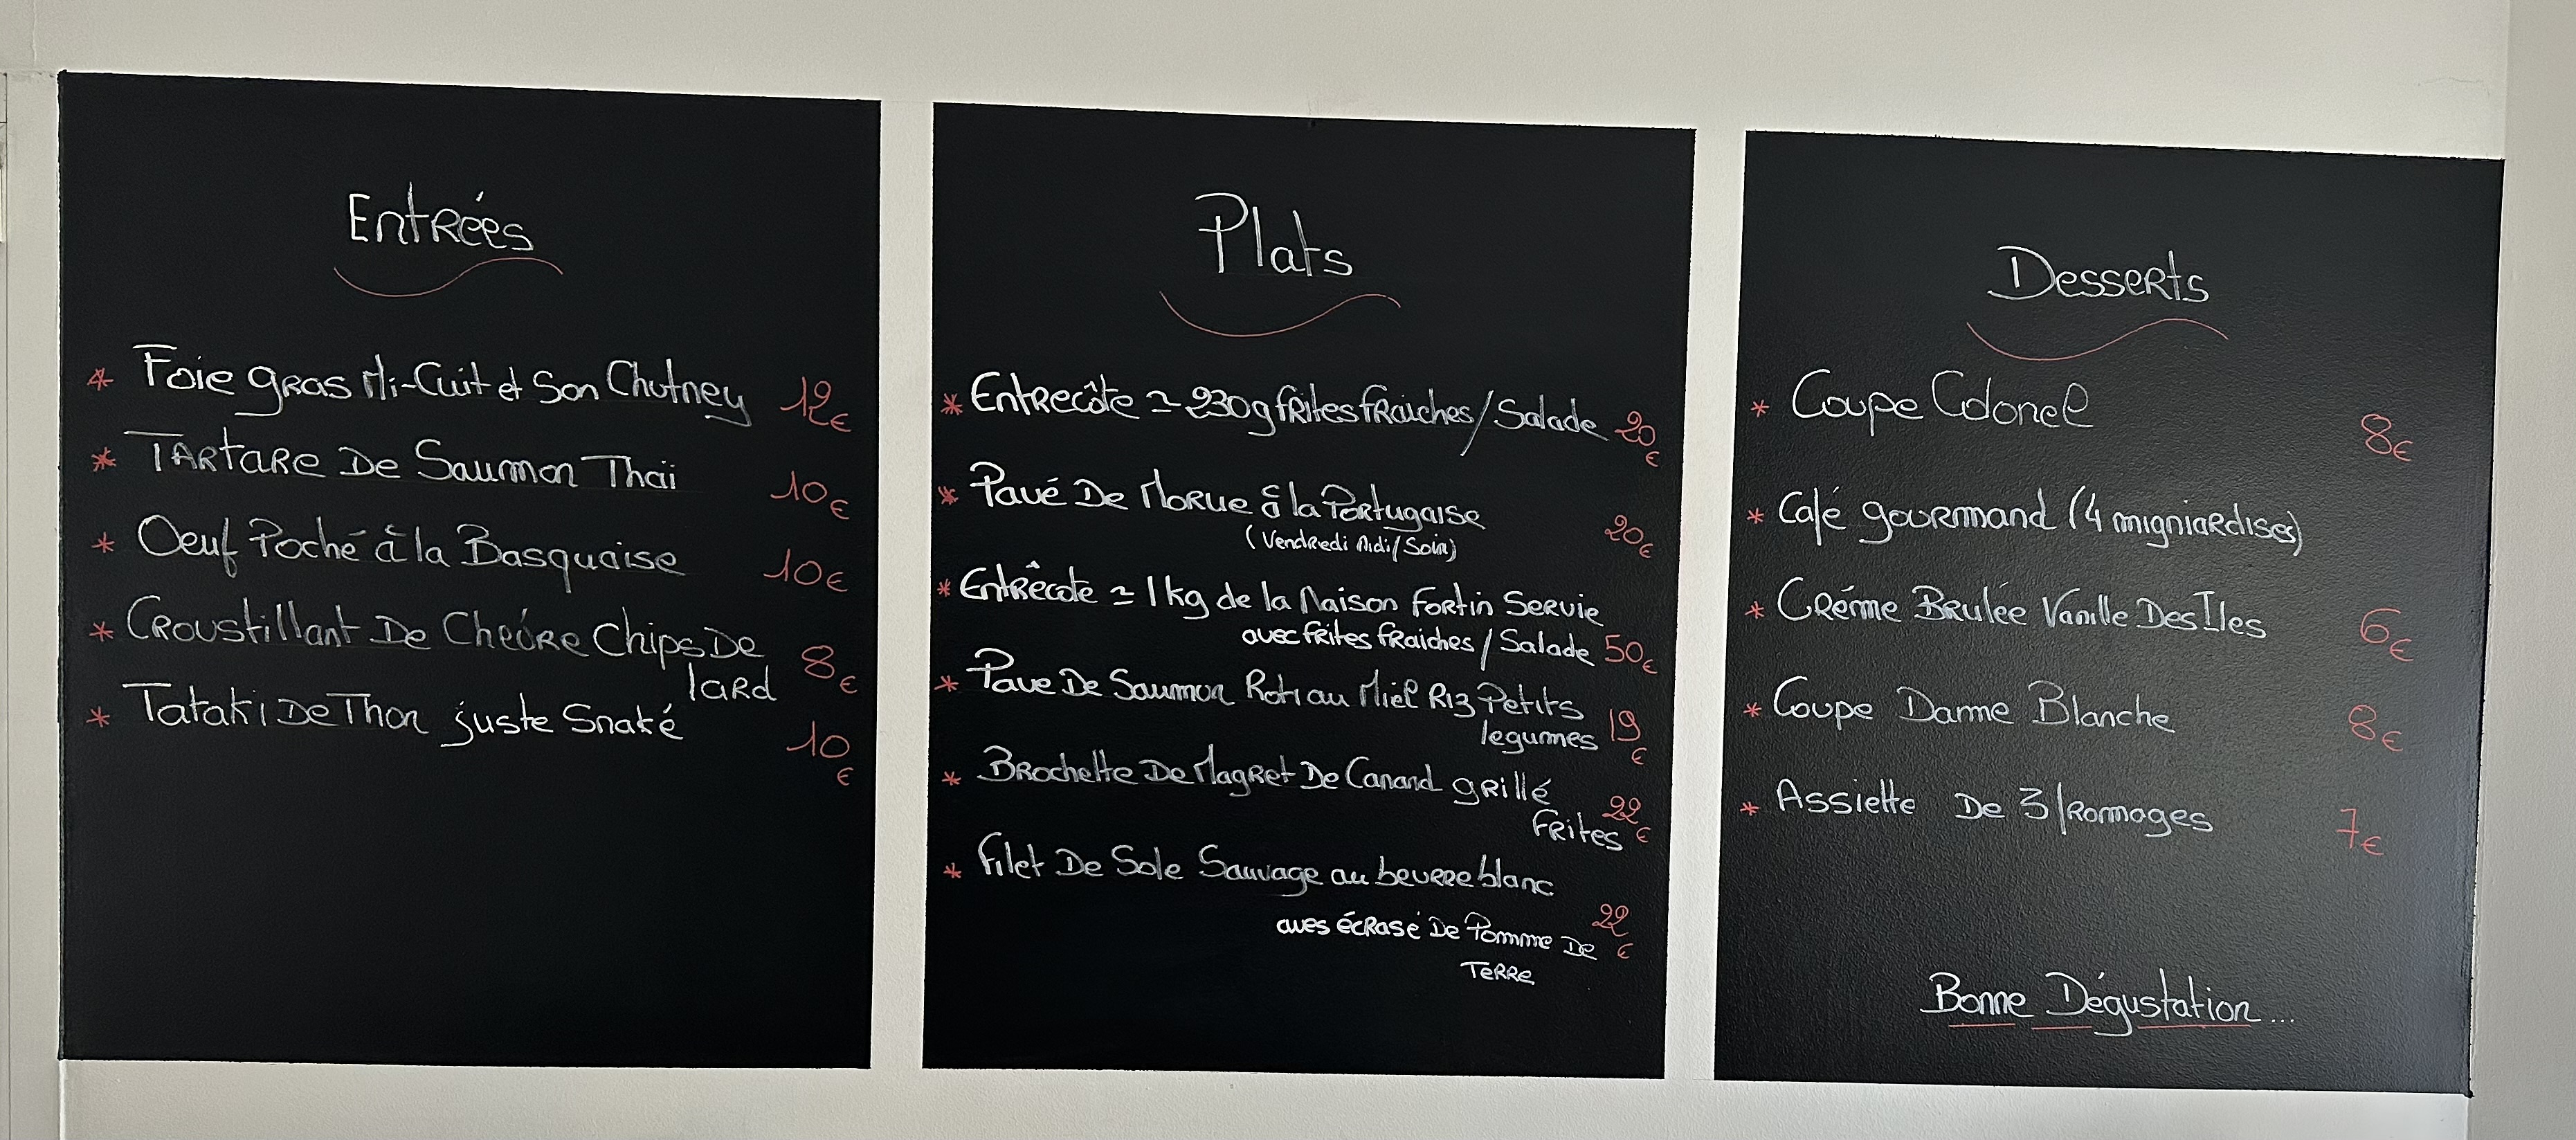 Entrées
* Foie gras Mi-Cuit et Son Chutney 12€
* Tartare De Saumon Thaï 10€
* Oeuf Poché à la Basquaise 10€
* Croustillant De Chévre Chips De
lard 8€
* Tataki De Thon juste Snaké 10€
Plats
* Entrecôte ≃ 230g frites fraiches / Salade 20€
* Pavé De Morue à la Portugaise
(Vendredi Midi / Soir) 20€
* Entrêcote ≃ 1kg de la Maison Fortin Servie
avec frites fraiches / Salade 50€
* Pave De Saumon Roti au Miel Riz Petits
legumes 19€
* Brochette De Magret De Canard grillé
Frites 22€
* Filet De Sole Sauvage au beurre blanc
aves écrasé De Pomme De 22€
Terre
Desserts
* Coupe Colonel 8€
* Café gourmand (4 migniardises)
* Créme Brulée Vanille Des Iles 6€
* Coupe Dame Blanche 8€
* Assiette De 3 fromages 7€
Bonne Dégustation...